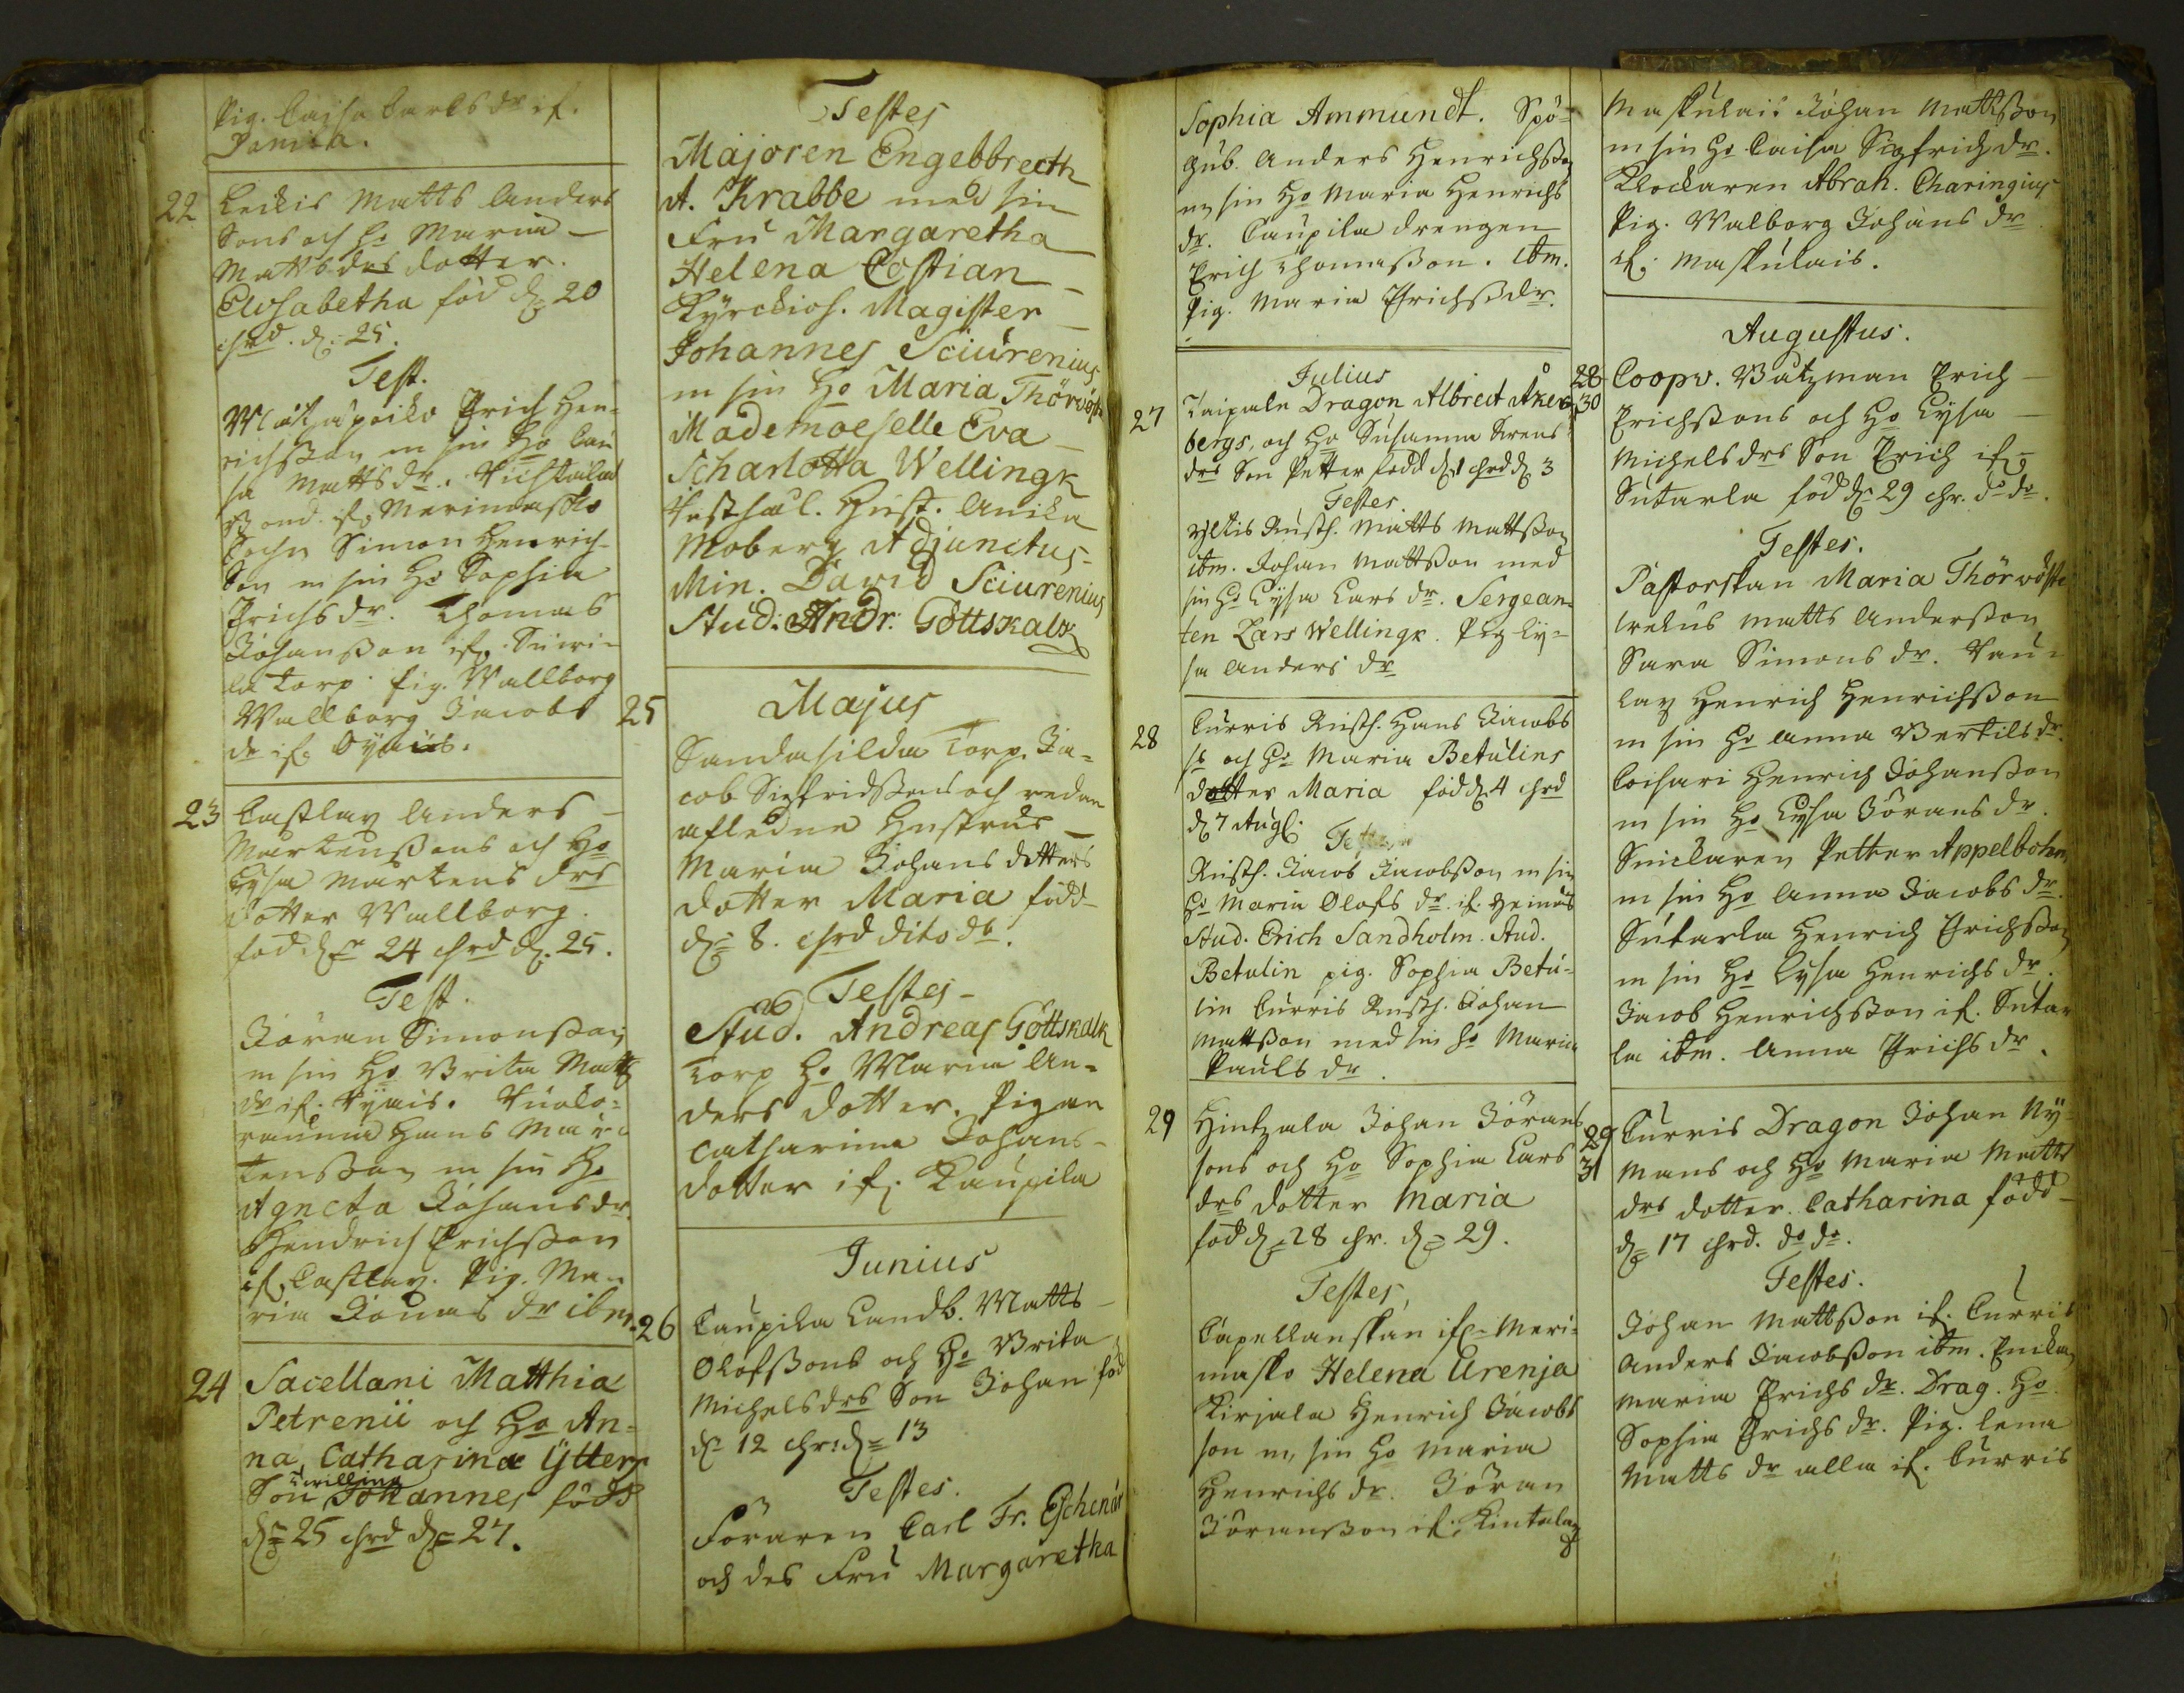 Pig. Caisa Carlsdr if.
Domila.
22 Leckis Matts Anders
Sons och Ho Maria
Matts drs dotter
Elisabetha föd d. 20
chrd. d. 25.
Test.
Erich Hen-
richsson m sin Ho Cai
sa Matts dr.
if. Merimasko
Simon Henrich
Son m sin Ho Sophia
Erichs dr. Thomas
Johansson if.
la Torp. Pig. Wallborg
Wallborg Jacobs
dr if.
23 Castlax Anders
Martensons och Ho
Lysa Martens drs
dotter Wallborg.
föd. d. 24 chrd d. 25.
Test.
Jöran Simonsson
m sin Ho Brita Matts
dr if. Kyais.
Hans Mår-
tensson m sin Ho
Agneta Johansdr.
Hendrich Erichsson
if. Castlax. Pig. Ma-
ria Jonas dr ibm.
24 Sacellani Matthiæ
Petrenii och Ho An-
na Catharina Ytters
twilling
Son Johannes född
d. 25 chrd d. 27.
Testes
Majoren Engebbrecth
A. Krabbe med sin
Fru Margaretha
Helena Costian
Kyrckioh. Magister
Johannes Sciurenius
m sin Ho Maria Thörwöst
Mademoeselle Eva
Scharlotta Wellingk
Hust. Anika
Moberg Adjunctus
Min. David Sciurenius
Stud. Andr. Göttskalk
Majus
25 Sandasilda Torp. Ja-
cob Sigfridssons och redan
afledne Hustrus
Maria Johans dotters
dotter Maria född
d. 8. chrd dito do.
Testes
Stud. Andreas Göttskalk
Torp Ho Maria An-
ders dotter. Pigan
Catharina Johans-
dotter if. Kaupila
Junius
26 Caupila Landb. Matts
Olofssons och Ho Brita
Michelsdrs Son Johan föd
d. 12 chr: d. 13
Testes.
Föraren Carl Fr. Eschenär
och des Fru Margaretha
Sophia Ammundt. Spö-
gub. Anders Henrichsson
m sin Ho Maria Henrichs
dr. Caupila drengen
Erich Thomasson. ibm.
Pig. Maria Erichsdr.
Julius
27 Taipale Dragon Albrect Åker-
bergs, och Ho Susanna Swens
drs Son Petter född d. 1 chrd d. 3
Testes.
Rusth. Matts Mattsson
ibm. Johan Mattsson med
sin Ho Lysa Lars dr. Sergean-
ten Lars Wellingk. Pig Ly-
sa Anders dr
28 Curris Rusth. Hans Jacobs
s. och Ho Maria Betulins
dotter Maria föd d. 4 chrd
d. 7 Aug.
Testes
Rusth. Jacob Jacobsson m sin
Ho Maria Olofs dr. if. Heimos
Stud. Erich Sandholm. Stud.
Betulin pig. Sophia Betu-
lin Curris Rusth. Johan
Mattsson med sin Ho Maria
Pauls dr.
29 Hintzala Johan Jörans
sons och Ho Sophia Lars
drs dotter Maria
föd d. 28 chr. d. 29.
Testes
Capellanskan if. Meri-
masko Helena Urenia
Kirjala Henrich Jacobs
son m, sin Ho Maria
Henrichs dr. Jöran
Jöransson if. Kintala
Maskulais Johan Mattsson
m sin Ho Caisa Sigfrids dr.
Klockaren Abrah. Charingius
Pig. Walborg Johans dr
if. Maskulais.
Augustus.
28
30 Coopv. Båtzman Erich
Erichssons och Ho Lysa
Michels drs Son Erich if.
Sutarla föd d. 29 chr. do do.
Testes.
Pastorskan Maria Thörwöste
Matts Andersson
Sara Simons dr.
Henrich Henrichsson
m sin Ho Anna Bertils dr.
Henrich Johansson
m sin Ho Lysa Jörans dr.
Snickaren Petter Appelbohm
m sin Ho Anna Jacobs dr.
Sutarla Henrich Erichsson
m sin Ho Lysa Henrichs dr.
Jacob Henrichsson if. Sutar
la ibm. Anna Erichs dr.
29
31 Curris Dragon Johan Ny-
mans och Ho Maria Matts
drs dotter Catharina född
d. 17 chrd. do do.
Testes.
Johan Mattsson if. Curris
Anders Jacobsson ibm. Enckan
Maria Erichs dr. Drag. Ho
Sophia Erichs dr. Pig. Lena
Matts dr alla if. Curris